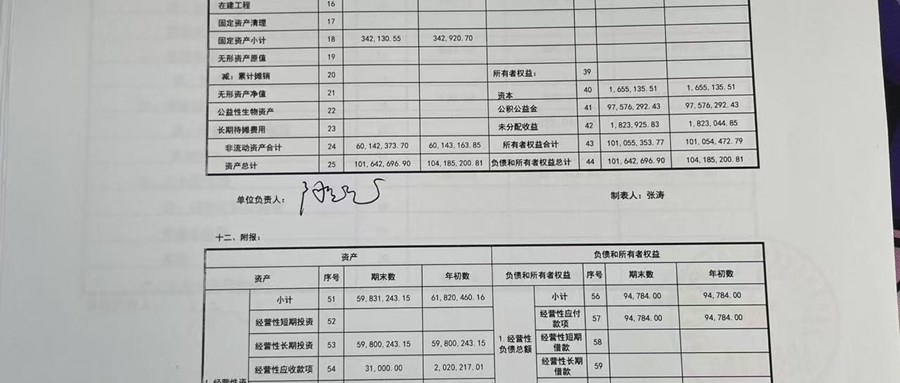 在建工程 16
固定资产清理 17
固定资产小计 18 342,130.55 342,920.70
无形资产原值 19
减：累计摊销 20 所有者权益： 39
无形资产净值 21 资本 40 1,655,135.51 1,655,135.51
公益性生物资产 22 公积公益金 41 97,576,292.43 97,576,292.43
长期待摊费用 23 未分配收益 42 1,823,925.83 1,823,044.85
非流动资产合计 24 60,142,373.70 60,143,163.85 所有者权益合计 43 101,055,353.77 101,054,472.79
资产总计 25 101,642,696.90 104,185,200.81 负债和所有者权益总计 44 101,642,696.90 104,185,200.81
单位负责人： 制表人：张涛
十二、附报：
资产 负债和所有者权益
资产 序号 期末数 年初数 负债和所有者权益 序号 期末数 年初数
小计 51 59,831,243.15 61,820,460.16 小计 56 94,784.00 94,784.00
经营性短期投资 52 经营性应付款项 57 94,784.00 94,784.00
经营性长期投资 53 59,800,243.15 59,800,243.15 1.经营性负债总额 经营性短期借款 58
经营性应收款项 54 31,000.00 2,020,217.01 经营性长期借款 59